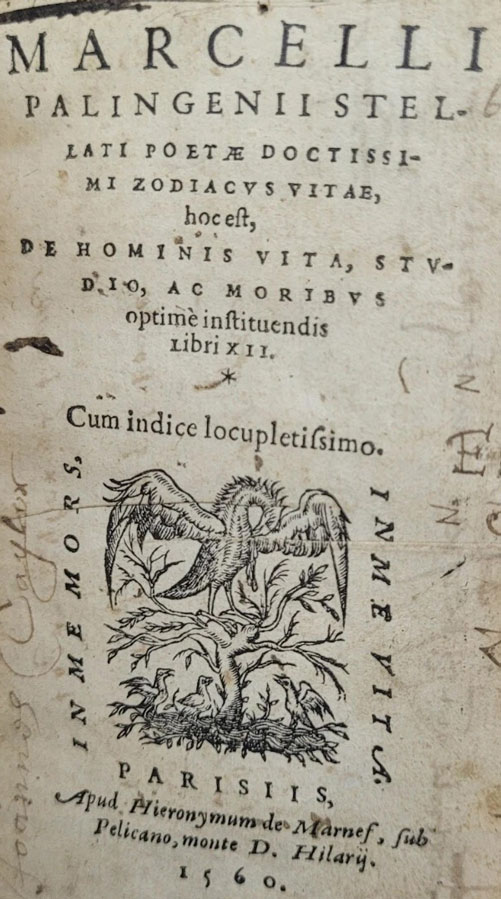 MARCELLI
PALINGENII STEL-
LATI POETÆ DOCTISSI-
MI ZODIACVS VITAE,
hoc eſt,
DE HOMINIS VITA, STV-
DIO, AC MORIBVS
optimè inſtituendis
Libri XII.
*
Cum indice locupletiſsimo.
IN ME MORS,
IN ME VITA.
PARISIIS,
Apud Hieronymum de Marnef, ſub
Pelicano, monte D. Hilarij.
1560.